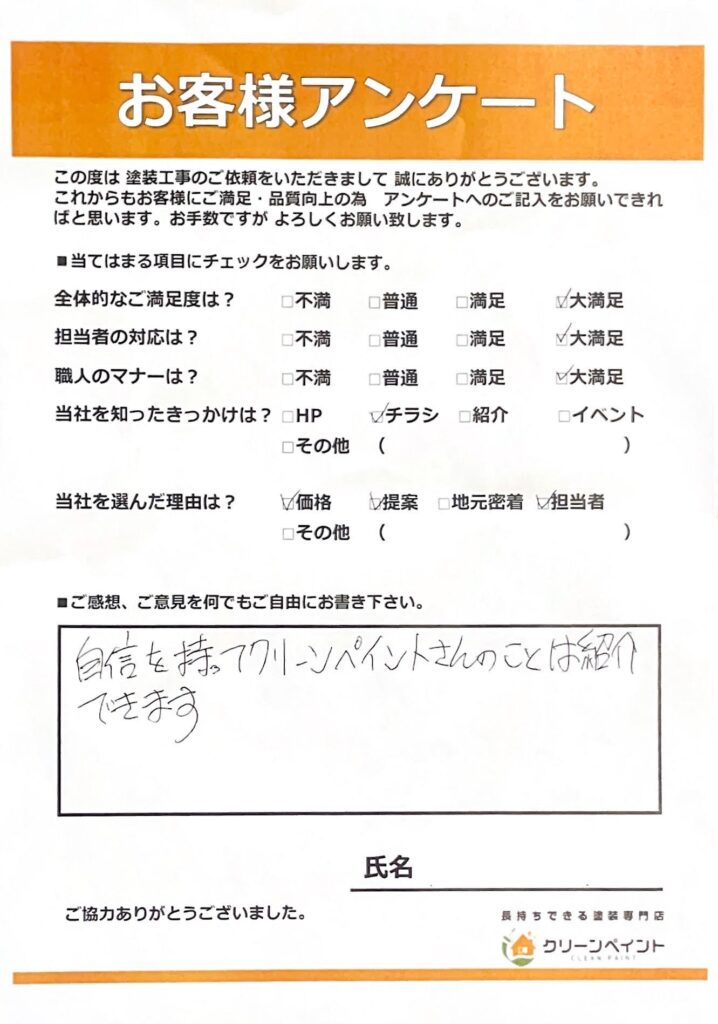 お客様アンケート
この度は 塗装工事のご依頼をいただきまして 誠にありがとうございます。
これからもお客様にご満足・品質向上の為　アンケートへのご記入をお願いできれ
ばと思います。お手数ですが よろしくお願い致します。
■当てはまる項目にチェックをお願いします。
全体的なご満足度は？ □不満 □普通 □満足 ☑大満足
担当者の対応は？ □不満 □普通 □満足 ☑大満足
職人のマナーは？ □不満 □普通 □満足 ☑大満足
当社を知ったきっかけは？ □HP ☑チラシ □紹介 □イベント
□その他 （ ）
当社を選んだ理由は？ ☑価格 ☑提案 □地元密着 ☑担当者
□その他 （ ）
■ご感想、ご意見を何でもご自由にお書き下さい。
自信を持ってクリーンペイントさんのことは紹介
できます
氏名
ご協力ありがとうございました。
長持ちできる塗装専門店
クリーンペイント
CLEAN PAINT